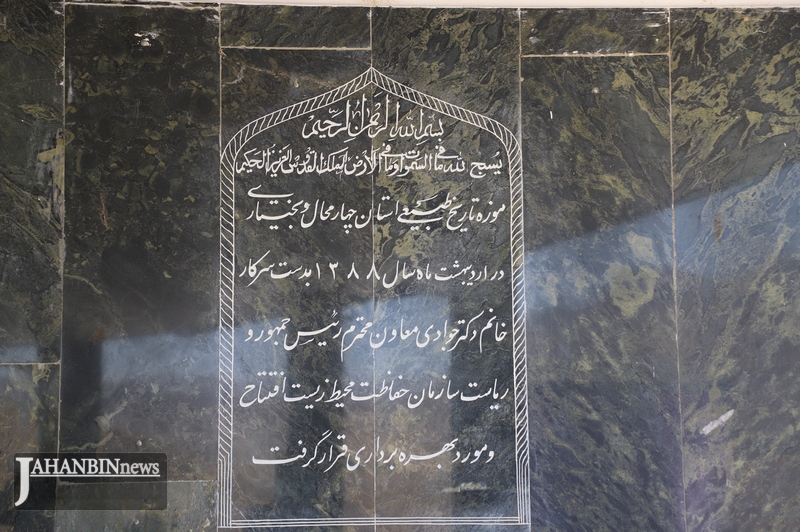 بسم الله الرحمن الرحیم
یسبح لله ما فی السموات و ما فی الارض الملک القدوس العزیز الحکیم
موزه تاریخ طبیعی استان چهارمحال و بختیاری
در اردیبهشت ماه سال ۱۳۸۸ بدست سرکار
خانم دکتر جوادی معاون محترم رئیس جمهور و
ریاست سازمان حفاظت محیط زیست افتتاح
و مورد بهره برداری قرار گرفت
JAHANBINnews